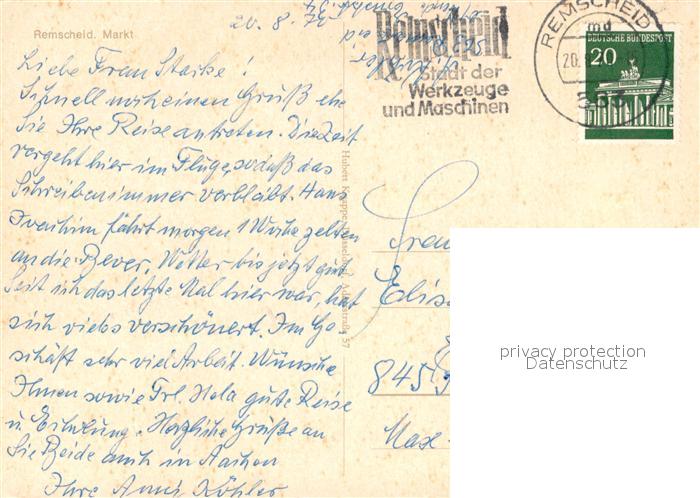 20. 8. 
Remscheid. Markt
Liebe Frau Starke!
Schnell noch einen Gruß ehe
Sie Ihre Reise antreten. Die Zeit
vergeht hier im Fluge, sodaß das
Schreiben immer verbleibt. Hans
Joachim fährt morgen 1 Woche zelten
an die Bever. Wetter bis jetzt gut.
Seit ich das letzte Mal hier war, hat
sich vieles verschönert. Im Ge
schäft sehr viel Arbeit. Wünsche
Ihnen sowie Frl. Hela gute Reise
u. Erholung. Herzliche Grüße an
Sie Beide auch in Aachen
Ihre Anni Köhler
Remscheid
Stadt der
Werkzeuge
und Maschinen
REMSCHEID
md
20.
563
DEUTSCHE BUNDESPOST
20
Frau
Elis
845
Max-
privacy protection
Datenschutz